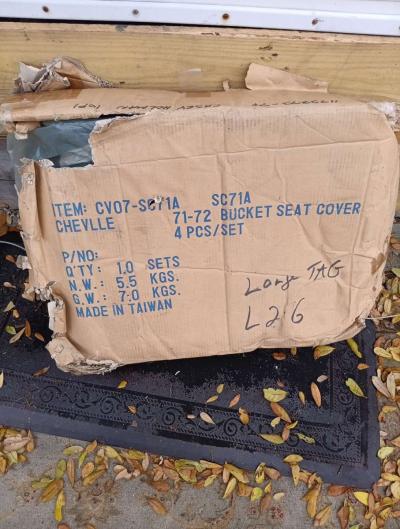 ITEM: CV07-SC71A SC71A
CHEVLLE 71-72 BUCKET SEAT COVER
4 PCS/SET
P/NO:
Q'TY : 1.0 SETS
N.W.: 5.5 KGS.
G.W.: 7.0 KGS.
MADE IN TAIWAN
Large TAG
L26